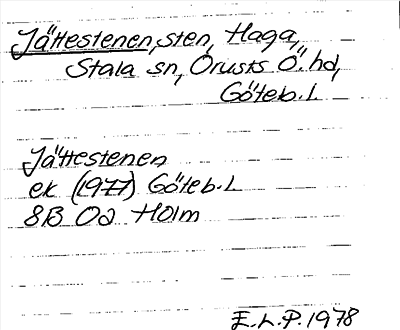 Jättestenen, sten, Haga,
Stala sn, Orusts Ö. hd,
Göteb. L
Jättestenen
ek (1977) Göteb. L
8B 0a Holm
E.L.P. 1978